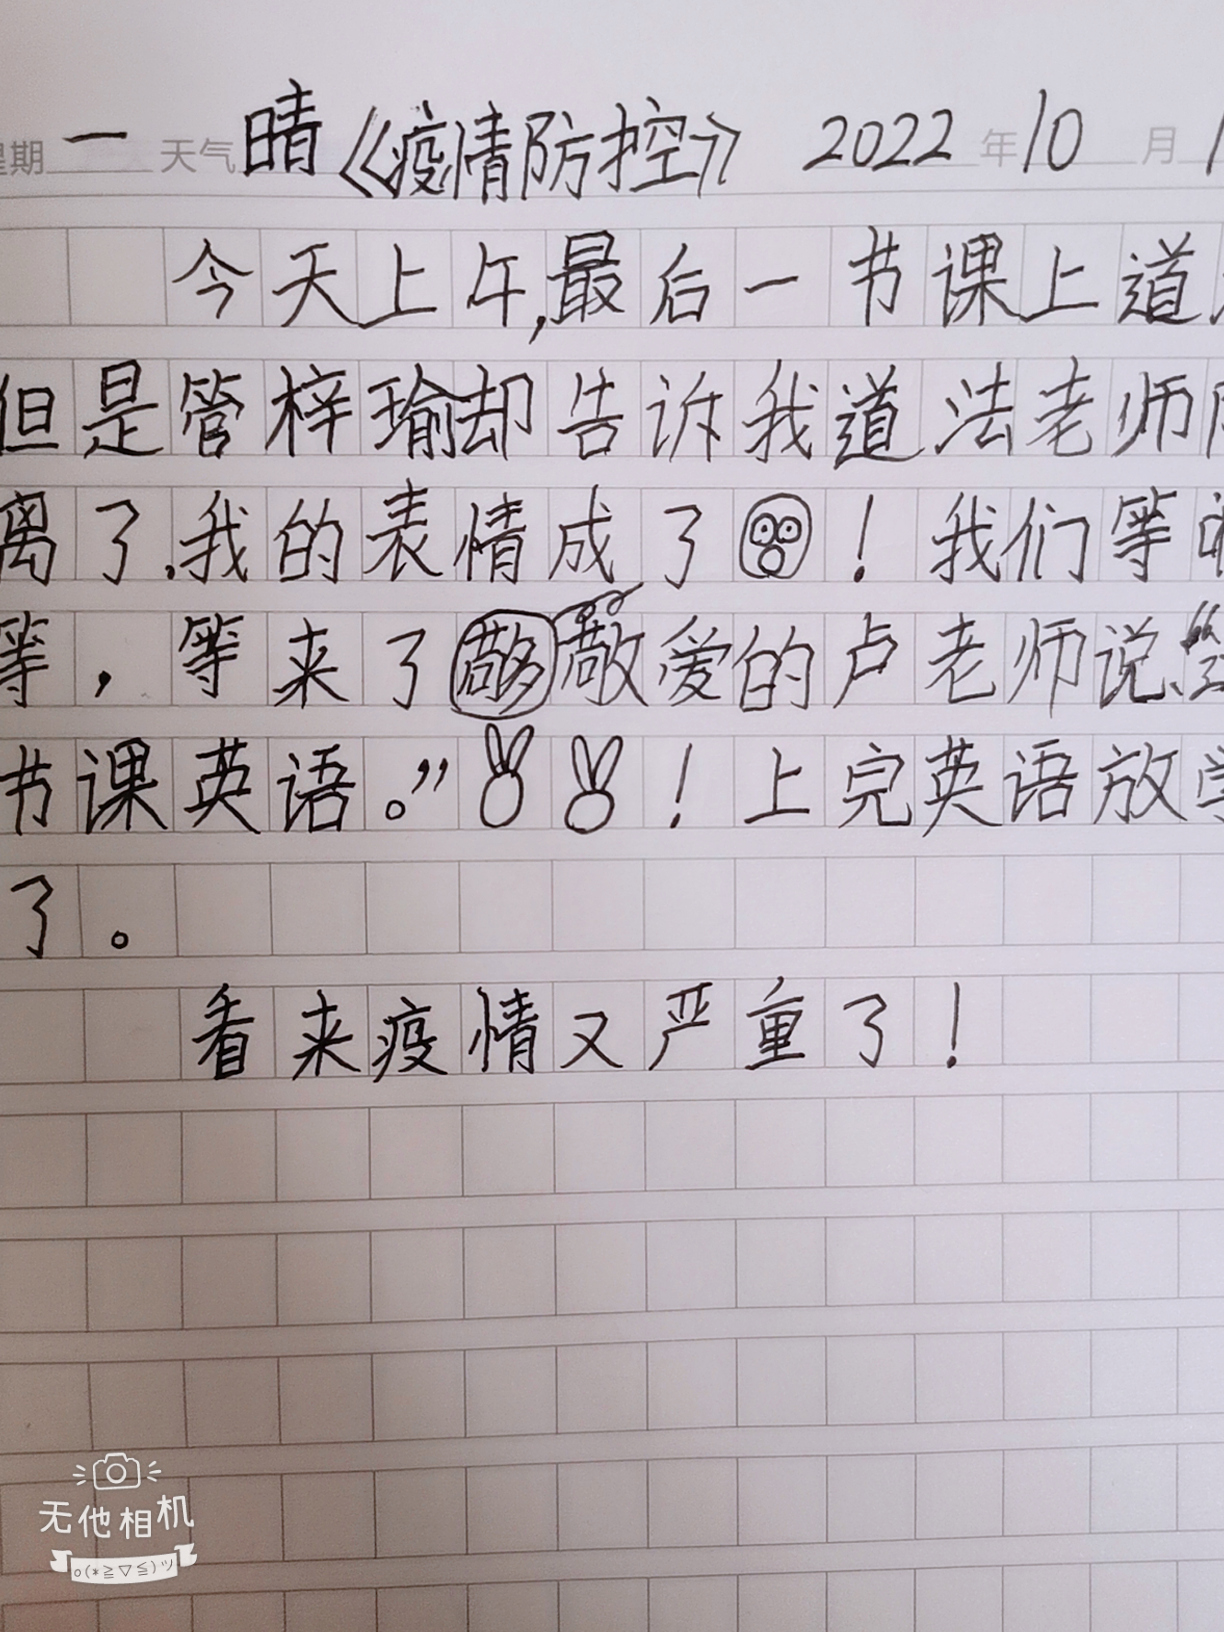 星期 一 天气 晴《疫情防控》 2022 年 10 月 1
今天上午,最后一节课上道
但是管梓瑜却告诉我道法老师
离了.我的表情成了！我们等
等，等来了敬爱的卢老师说“
节课英语。”！上完英语放学
了。
看来疫情又严重了！
无他相机
o(*≧▽≦)ツ